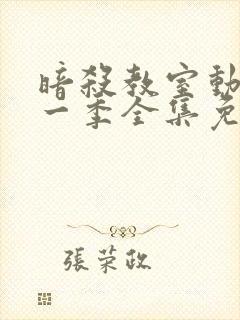 暗殺教室動
一季全集免
張荣政